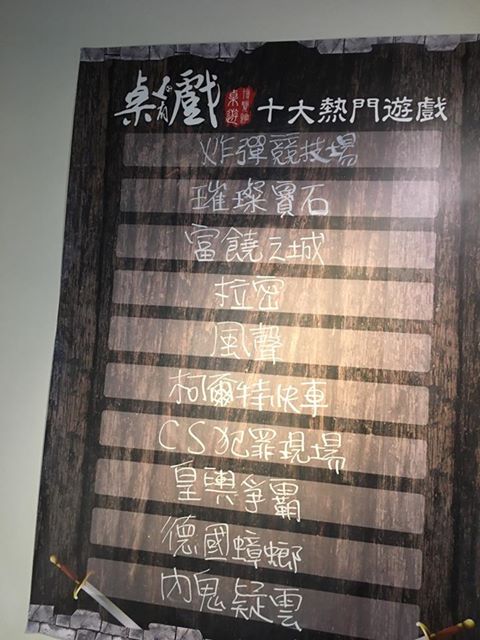 桌有戲 桌遊博覽館 十大熱門遊戲
炸彈競技場
璀璨寶石
富饒之城
拉密
風聲
柯爾特快車
CS犯罪現場
皇輿爭霸
德國蟑螂
內鬼疑雲